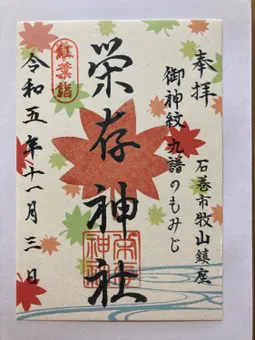 奉拝
石巻市牧山鎮座
御神紋 九譜のもみじ
栄存神社
紅葉詣
令和五年十一月三日